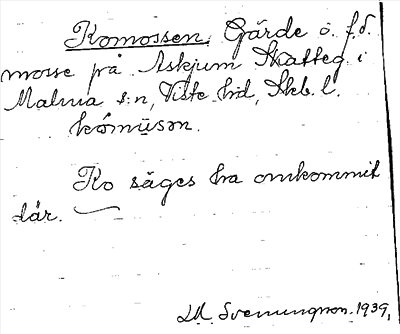 Komossen. Gärde o. f.d.
mosse på Askjum Skatteg. i
Malma s:n, Viste hd, Skb. l.
kómúsən.
Ko säges ha omkommit
där.
Svenungson. 1939.